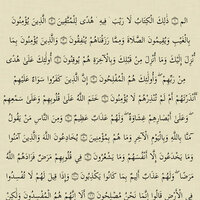 الم ۝ ذَٰلِكَ الْكِتَابُ لَا رَيْبَ فِيهِ هُدًى لِلْمُتَّقِينَ ۝ الَّذِينَ يُؤْمِنُونَ
بِالْغَيْبِ وَيُقِيمُونَ الصَّلَاةَ وَمِمَّا رَزَقْنَاهُمْ يُنْفِقُونَ ۝ وَالَّذِينَ يُؤْمِنُونَ بِمَا
أُنْزِلَ إِلَيْكَ وَمَا أُنْزِلَ مِنْ قَبْلِكَ وَبِالْآخِرَةِ هُمْ يُوقِنُونَ ۝ أُولَٰئِكَ عَلَىٰ هُدًى
مِنْ رَبِّهِمْ وَأُولَٰئِكَ هُمُ الْمُفْلِحُونَ ۝ إِنَّ الَّذِينَ كَفَرُوا سَوَاءٌ عَلَيْهِمْ
أَأَنْذَرْتَهُمْ أَمْ لَمْ تُنْذِرْهُمْ لَا يُؤْمِنُونَ ۝ خَتَمَ اللَّهُ عَلَىٰ قُلُوبِهِمْ وَعَلَىٰ سَمْعِهِمْ
وَعَلَىٰ أَبْصَارِهِمْ غِشَاوَةٌ وَلَهُمْ عَذَابٌ عَظِيمٌ ۝ وَمِنَ النَّاسِ مَنْ يَقُولُ
آمَنَّا بِاللَّهِ وَبِالْيَوْمِ الْآخِرِ وَمَا هُمْ بِمُؤْمِنِينَ ۝ يُخَادِعُونَ اللَّهَ وَالَّذِينَ آمَنُوا
وَمَا يَخْدَعُونَ إِلَّا أَنْفُسَهُمْ وَمَا يَشْعُرُونَ ۝ فِي قُلُوبِهِمْ مَرَضٌ فَزَادَهُمُ اللَّهُ
مَرَضًا وَلَهُمْ عَذَابٌ أَلِيمٌ بِمَا كَانُوا يَكْذِبُونَ ۝ وَإِذَا قِيلَ لَهُمْ لَا تُفْسِدُوا
فِي الْأَرْضِ قَالُوا إِنَّمَا نَحْنُ مُصْلِحُونَ ۝ أَلَا إِنَّهُمْ هُمُ الْمُفْسِدُونَ وَلَٰكِنْ